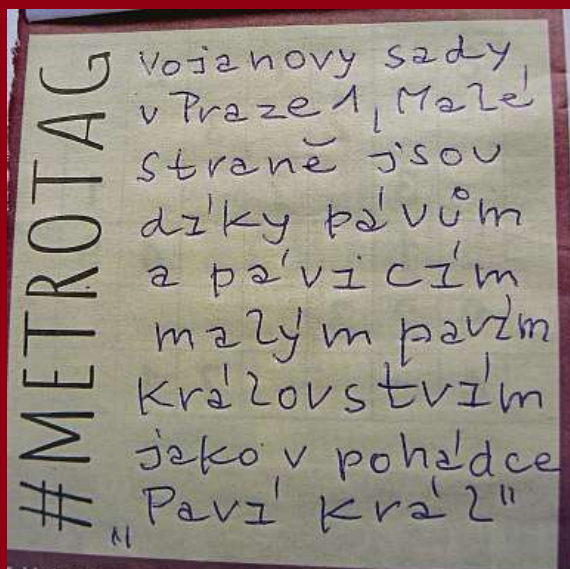 #METROTAG
Vojanovy sady
v Praze 1, Malé
straně jsou
díky pávům
a pávicím
malým pavím
královstvím
jako v pohádce
„Paví král"